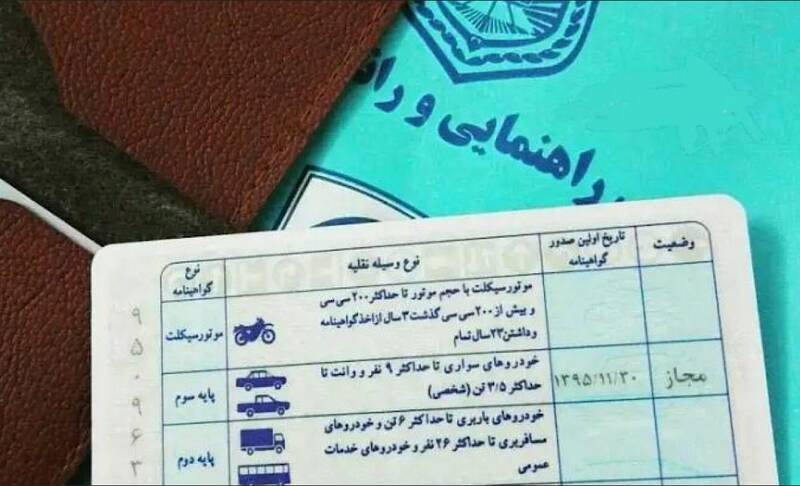 راهنمایی و
وضعیت
تاریخ اولین صدور
گواهینامه
نوع وسیله نقلیه
نوع
گواهینامه
موتورسیکلت با حجم موتور تا حداکثر ۲۰۰ سی سی
و بیش از ۲۰۰ سی سی گذشت ۳ سال از اخذ گواهینامه
و داشتن ۲۳ سال تمام
موتورسیکلت
مجاز
۱۳۹۵/۱۱/۳۰
خودروهای سواری تا حداکثر ۹ نفر و وانت تا
حداکثر ۳/۵ تن (شخصی)
پایه سوم
خودروهای باربری تا حداکثر ۶ تن و خودروهای
مسافربری تا حداکثر ۲۶ نفر و خودروهای خدمات
عمومی
پایه دوم
۹
۵
۰
۹
۶
۳